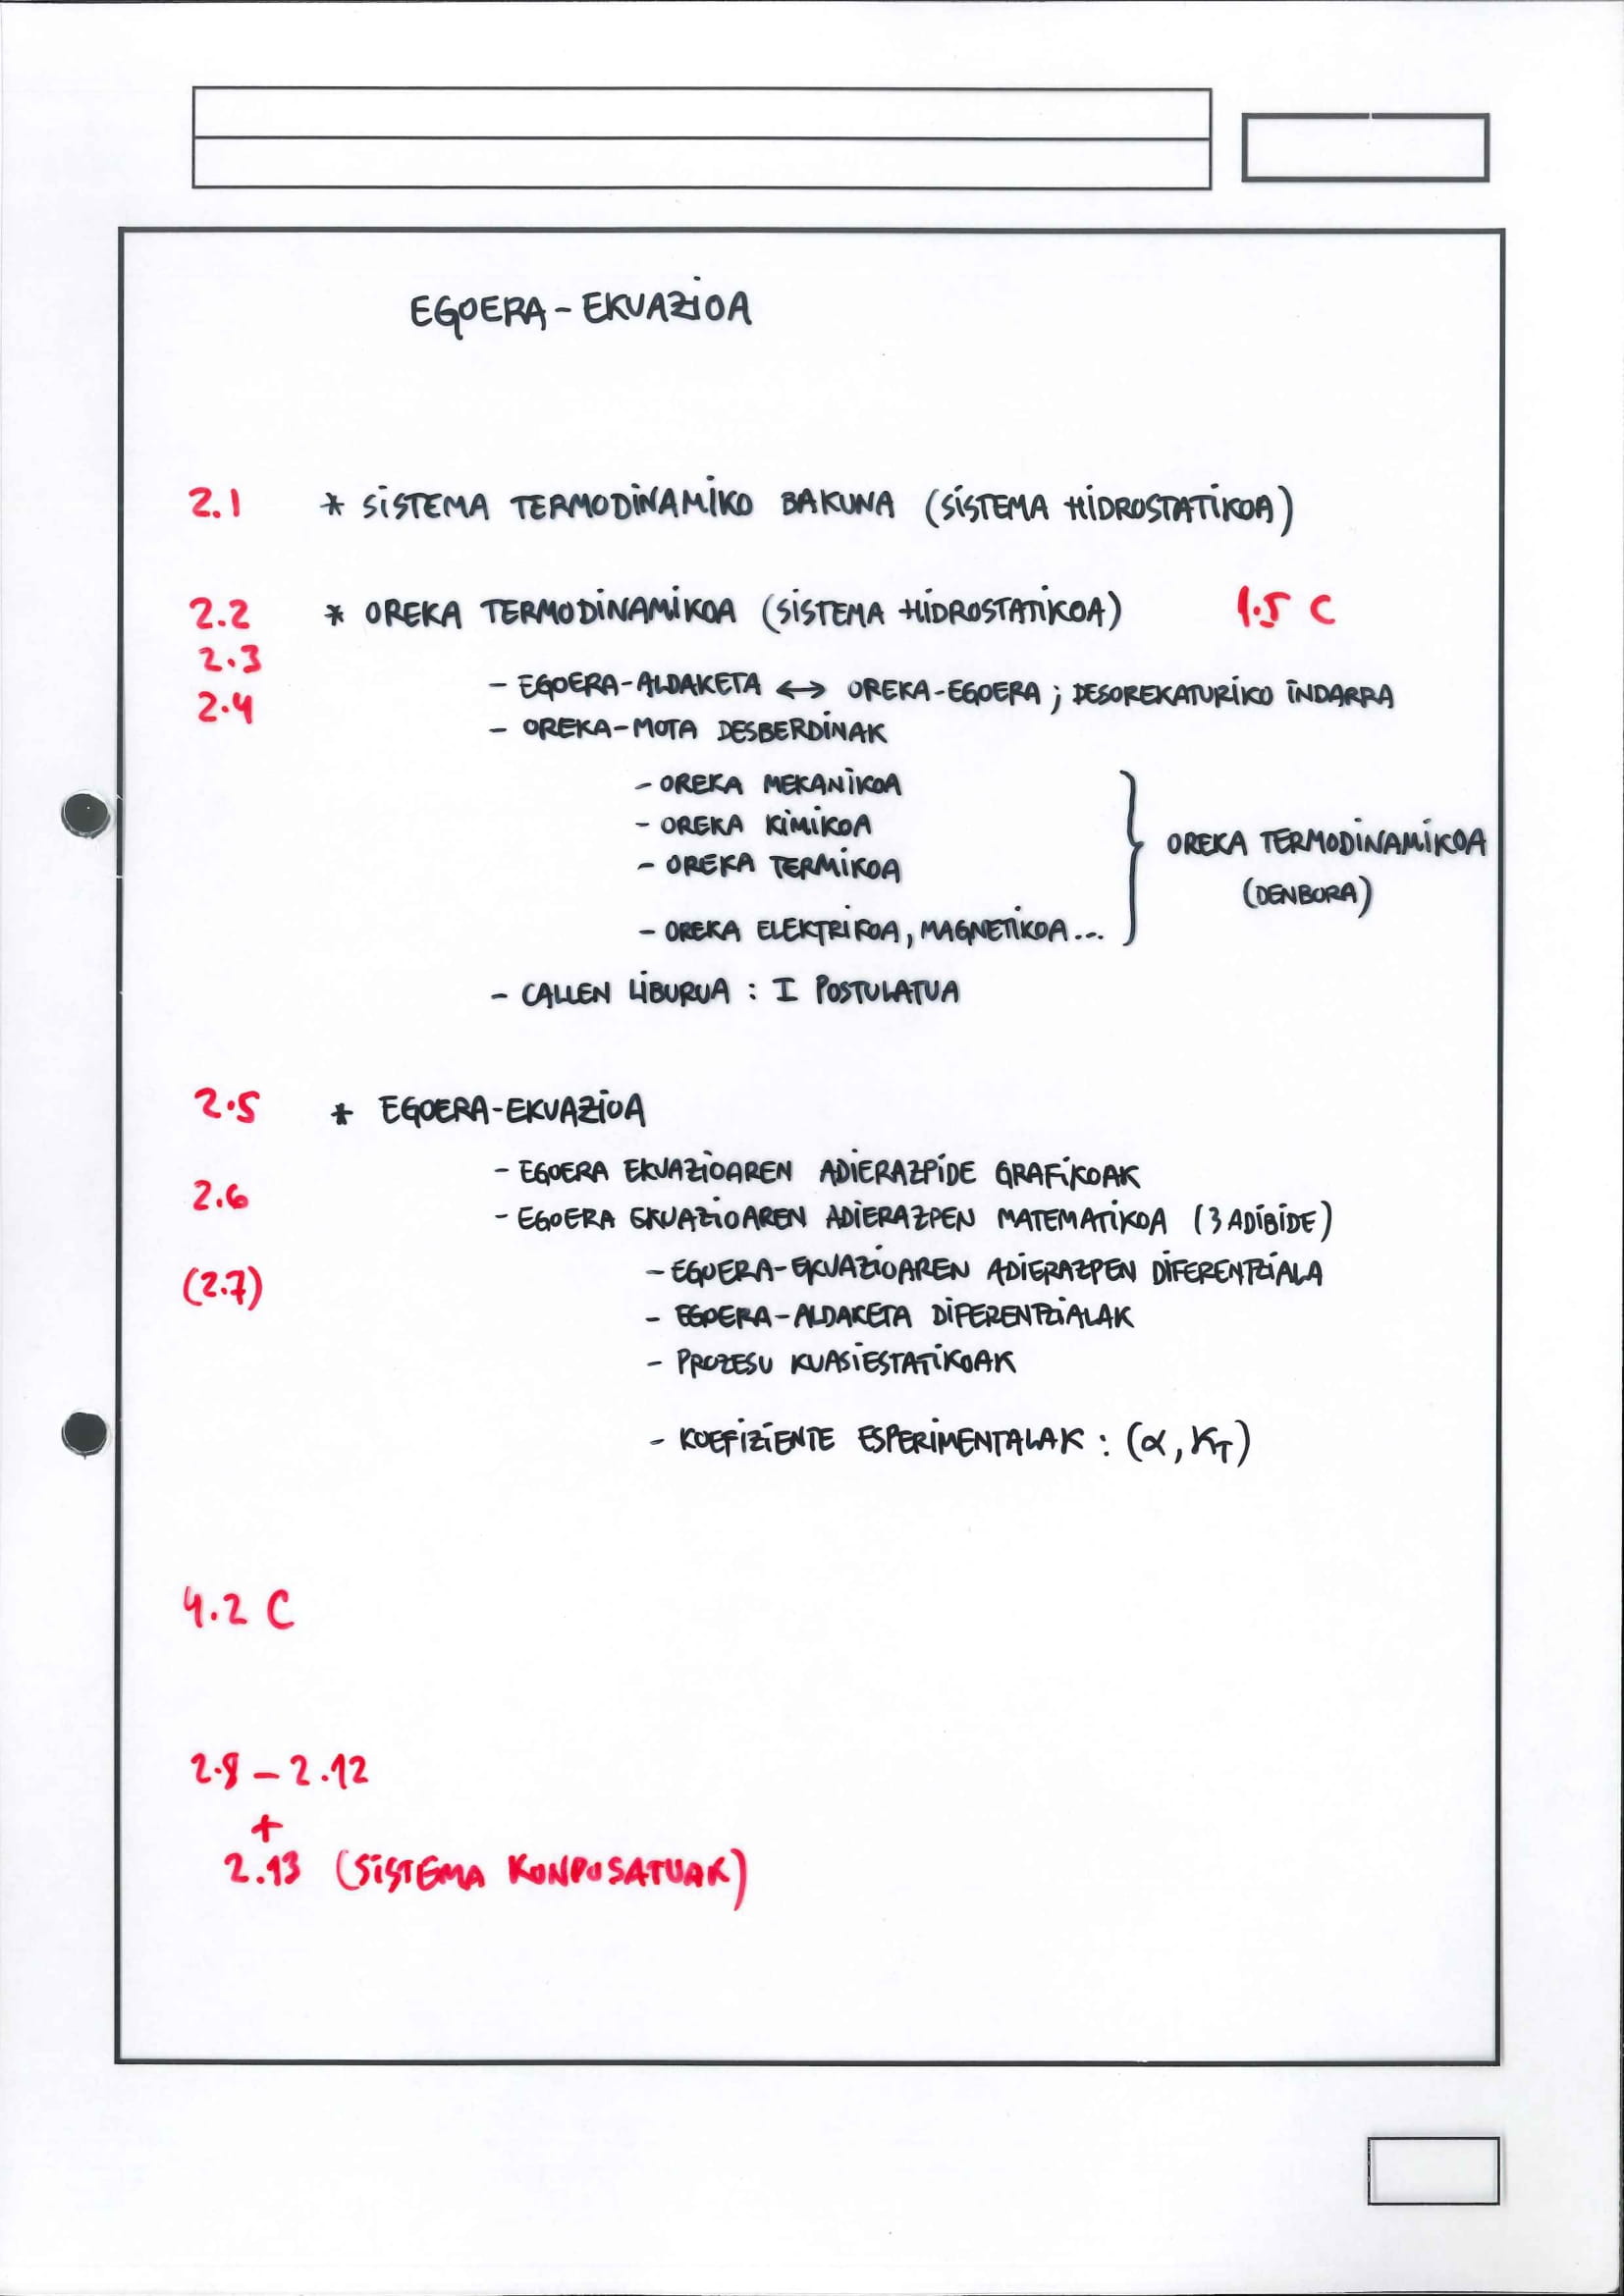 EGOERA-EKUAZIOA
2.1 * SISTEMA TERMODINAMIKO BAKUNA (SISTEMA HIDROSTATIKOA)
2.2 * OREKA TERMODINAMIKOA (SISTEMA HIDROSTATIKOA) 1.5 C
2.3
- EGOERA-ALDAKETA <-> OREKA-EGOERA ; DESOREKATURIKO INDARRA
2.4
- OREKA-MOTA DESBERDINAK
- OREKA MEKANIKOA
- OREKA KIMIKOA
- OREKA TERMIKOA
- OREKA ELEKTRIKOA, MAGNETIKOA...
} OREKA TERMODINAMIKOA
(DENBORA)
- CALLEN LIBURUA : I POSTULATUA
2.5 * EGOERA-EKUAZIOA
- EGOERA EKUAZIOAREN ADIERAZPIDE GRAFIKOAK
2.6 - EGOERA EKUAZIOAREN ADIERAZPEN MATEMATIKOA (3 ADIBIDE)
(2.7) - EGOERA-EKUAZIOAREN ADIERAZPEN DIFERENTZIALA
- EGOERA-ALDAKETA DIFERENTZIALAK
- PROZESU KUASIESTATIKOAK
- KOEFIZIENTE ESPERIMENTALAK : (α, KT)
4.2 C
2.8 - 2.12
+
2.13 (SISTEMA KONPOSATUAK)